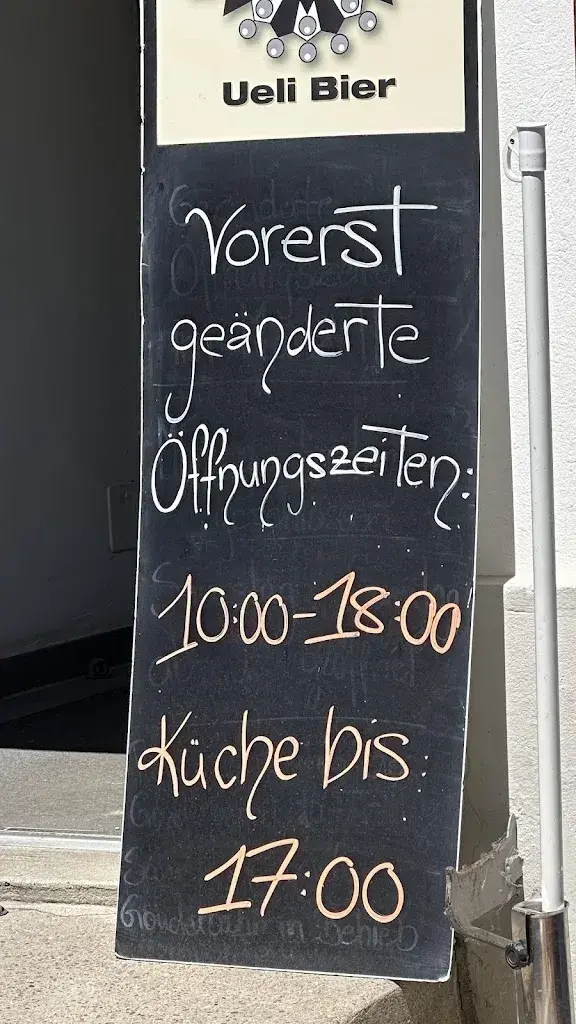 Ueli Bier
Vorerst
geänderte
Öffnungszeiten:
10:00-18:00
Küche bis:
17:00